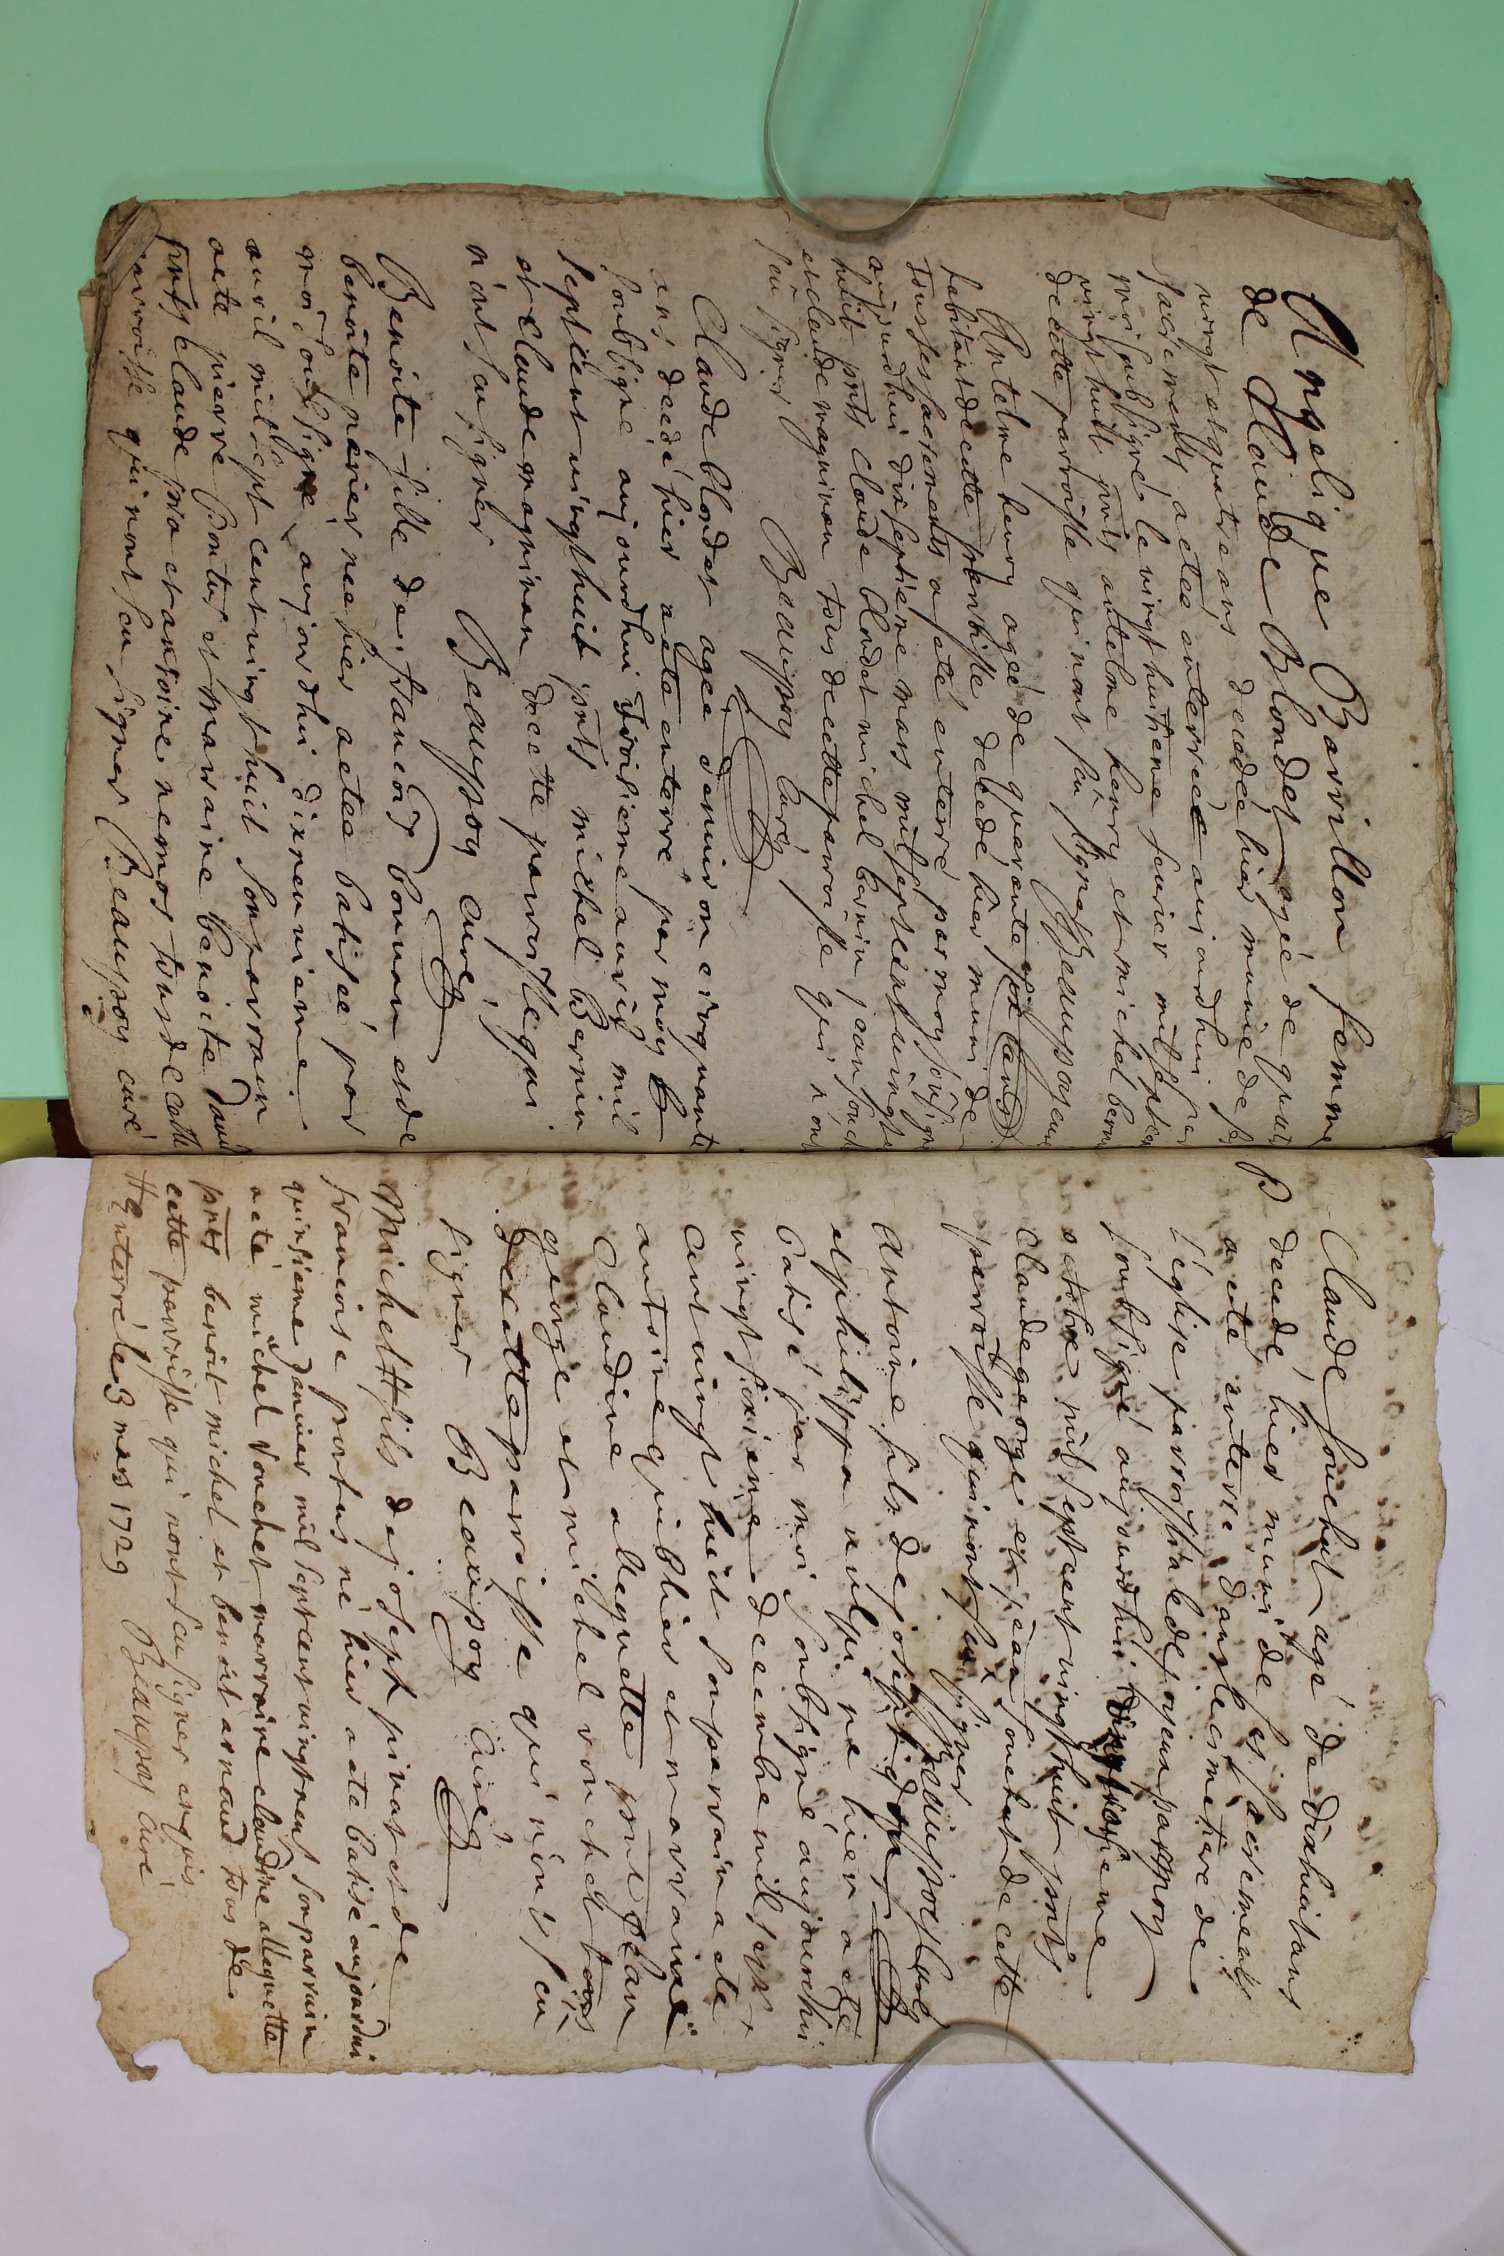 Angelique Barillon femme
de Claude Blondet agée de quatre
vingt et quatre ans decedée hier munie de ses
sacrements a etee enterrée aujourdhui par
moi soubsigné le vingt huitiene fevrier mil sept cen
vingt huit prnts antelme henry et michel bernin
de cette parroisse qui n'ont sçu signer Beaupoy
Antelme henry agé de quarante six ans
habitant de cette parroisse decedé hier muni de
tous ses sacrements a eté enterré par moy soubsigné
aujourdhui dix septieme mars mil sept cent vingt
huit prnts claude blondet michel bernin, jean fouchet
et claude magninon tous de cette parroisse qui n'ont
sçu signer Beaupoy curé
Claude blondet agee denuiron cinquante
ans decedé hier a ete enterré par moy
soubsigné aujourdhui troisieme auril mil
sept cent vingt huit prnts michel bernin
et claude magninon de cette parroisse qui
n'ont sçu signer Beaupoy curé
Benoite fille de francois bonnan et de
benoite perier nee hier a etee batisée par
moi soubsigné aujourdhui dixneuvieme
auril mil sept cent vingt huit son parrain
a ete pierre pontus et marraine benoite
prnts claude pra et antoine nemos tous de cette
parroisse qui n'ont sçu signer Beaupoy curé
Claude fouchet agé de dixhuit ans
decedé hier muni de ses sacrements
a eté enterré dans le cimetiere de
l'eglise parroissiale de par moy
soubsigné aujourdhui
octobre mil sept cent vingt huit prnts
claude george et jean fouchet de cette
parroisse qui n'ont sçu signer Beaupoy curé
Antoine fils de joseph
et philippa vulpi né hier a eté
batisé par moi soubsigné aujourdhui
vingt sixieme decembre mil sept
cent vingt huit son parrain a ete
antoine guiblier et marraine
Claudine alleguette prnts jean
george et michel vouchet tous
de cette parroisse qui n'ont sçu
signer Beaupoy curé
Michel fils de joseph pivat et de
francoise pontus né hier a ete batisé aujourdui
quinsieme janvier mil sept cent vingt neuf son parrain
a eté michel vouchet marraine claudine alleguette
prnts benoit michel et benoit arnaud tous de
cette parroisse qui n'ont sçu signer enquis
Enterré le 3 mars 1729 Beaupoy curé